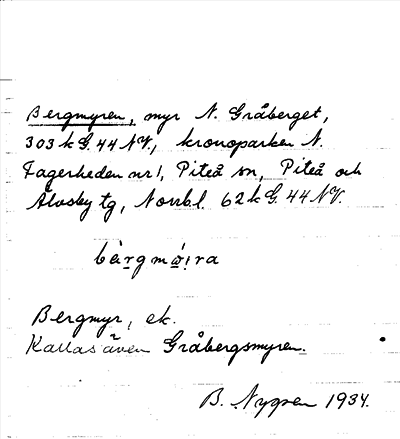 Bergmyren, myr N. Gråberget,
303 k G. 44 NV, kronoparken N.
Fagerheden nr 1, Piteå sn, Piteå och
Älvsby tg, Norrbl. 62 k G. 44 NV.
Bergmyr, ek.
Kallas även Gråbergsmyren.
B. Nygren 1934.